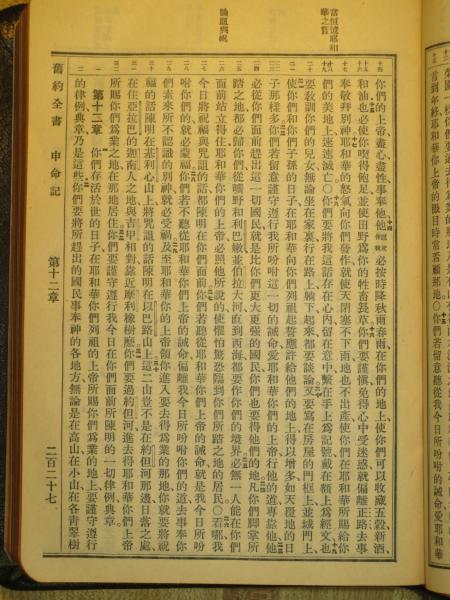 當恒遵耶和華之言
當到年終耶和華你上帝的眼目時常看顧那地○你們若留意聽從我今日所吩咐的誡命愛耶和華
你們的上帝盡心盡性事奉他他必按時降秋雨春雨在你們的地上使你們可以收藏五穀新酒、
和油也必使你喫得飽足並使田野爲你的牲畜長草你們要謹慎免得心中受迷惑就偏離正路去事
奉敬拜別神耶和華的怒氣向你們發作就使天閉塞不下雨地也不出產使你們在耶和華所賜給你
們的美地上速速滅亡○你們要將我這話存在心內留在意中繫在手上爲記號戴在額上爲經文也
要教訓你們的兒女無論坐在家裏行在路上躺下起來都要談論又要寫在房屋的門框上並城門上、
使你們和你們子孫的日子在耶和華向你們列祖起誓應許給他們的地上得以增多如天覆地的日
子那樣多你們若留意謹守遵行我所吩咐這一切的誡命愛耶和華你們的上帝行他的道專靠他他
必從你們面前趕出這一切國民就是比你們更大更強的國民你們也要得他們的地凡你們脚掌所
踏之地都必歸你們從曠野和利巴嫩並伯拉大河直到西海都要作你們的境界必無一人能在你們
面前站立得住耶和華你們的上帝必照他所說的使懼怕驚恐臨到你們所踏之地的居民○看哪我
今日將祝福與咒詛的話都陳明在你們面前你們若聽從耶和華你們上帝的誡命就是我今日所吩
咐你們的就必蒙福你們若不聽從耶和華你們上帝的誡命偏離我今日所吩咐你們的道去事奉你
們素來所不認識的別神就必受禍及至耶和華你的上帝領你進入要去得爲業的那地你就要將祝
福的話陳明在基利心山上將咒詛的話陳明在以巴路山上這二山豈不是在約但河那邊日落之處
在住亞拉巴的迦南人之地與吉甲相對靠近摩利橡樹麼你們要過約但河進去得耶和華你們上帝
所賜你們爲業之地在那地居住你們要謹守遵行我今日在你們面前所陳明的一切律例典章
第十二章 你們存活於世的日子在耶和華你們列祖的上帝所賜你們爲業的地上要謹守遵行
的律例典章乃是這些你們要將所趕出的國民事奉神的各地方無論是在高山在小山在各青翠樹
舊約全書 申命記 第十二章 二百二十七